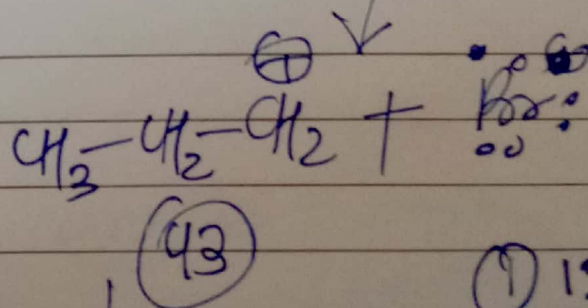 ⊕
CH₃-CH₂-CH₂ + Br
43
①